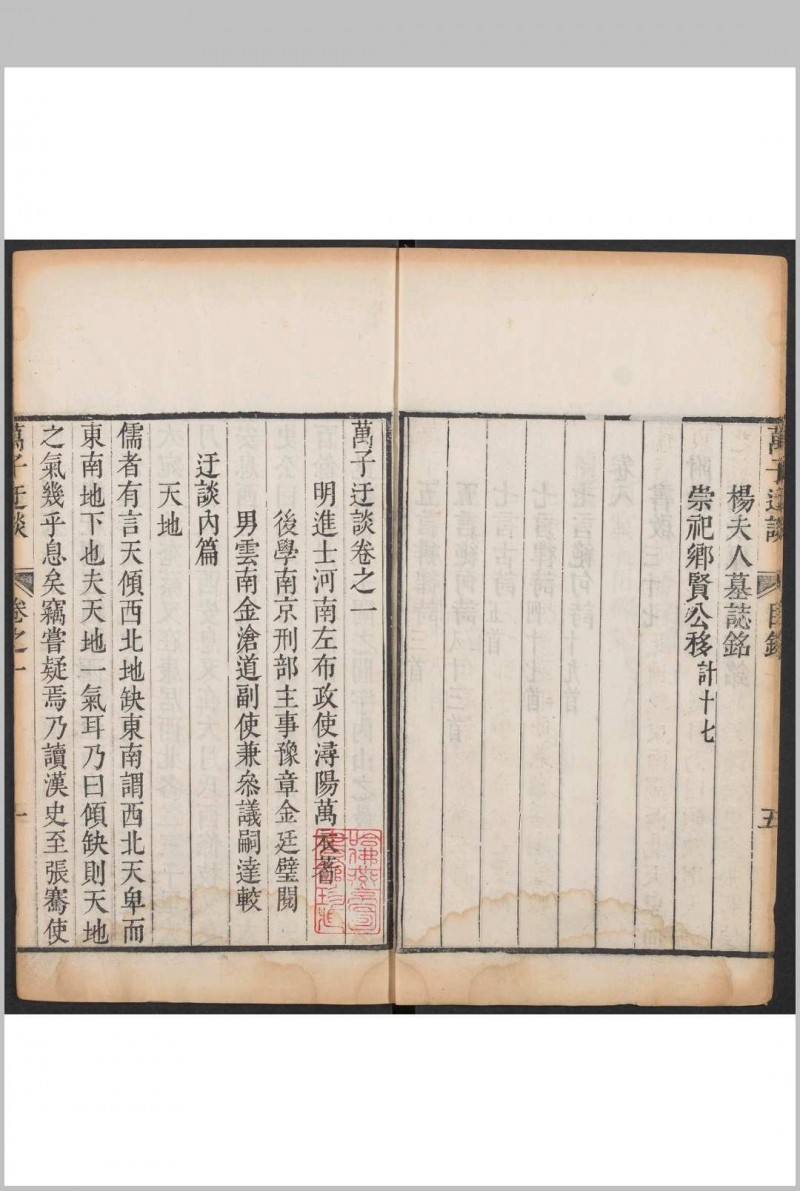 萬子迂談 目錄 五
楊夫人墓誌銘
崇祀鄉賢公移計十七
萬子迂談卷之一
明進士河南左布政使潯陽萬衣著
後學南京刑部主事豫章金廷璧閱
男雲南金滄道副使兼叅議嗣達較
迂談內篇
天地
儒者有言天傾西北地缺東南謂西北天卑而
東南地下也夫天地一氣耳乃曰傾缺則天地
之氣幾乎息矣竊嘗疑焉乃讀漢史至張騫使
萬子迂談 卷之一 一